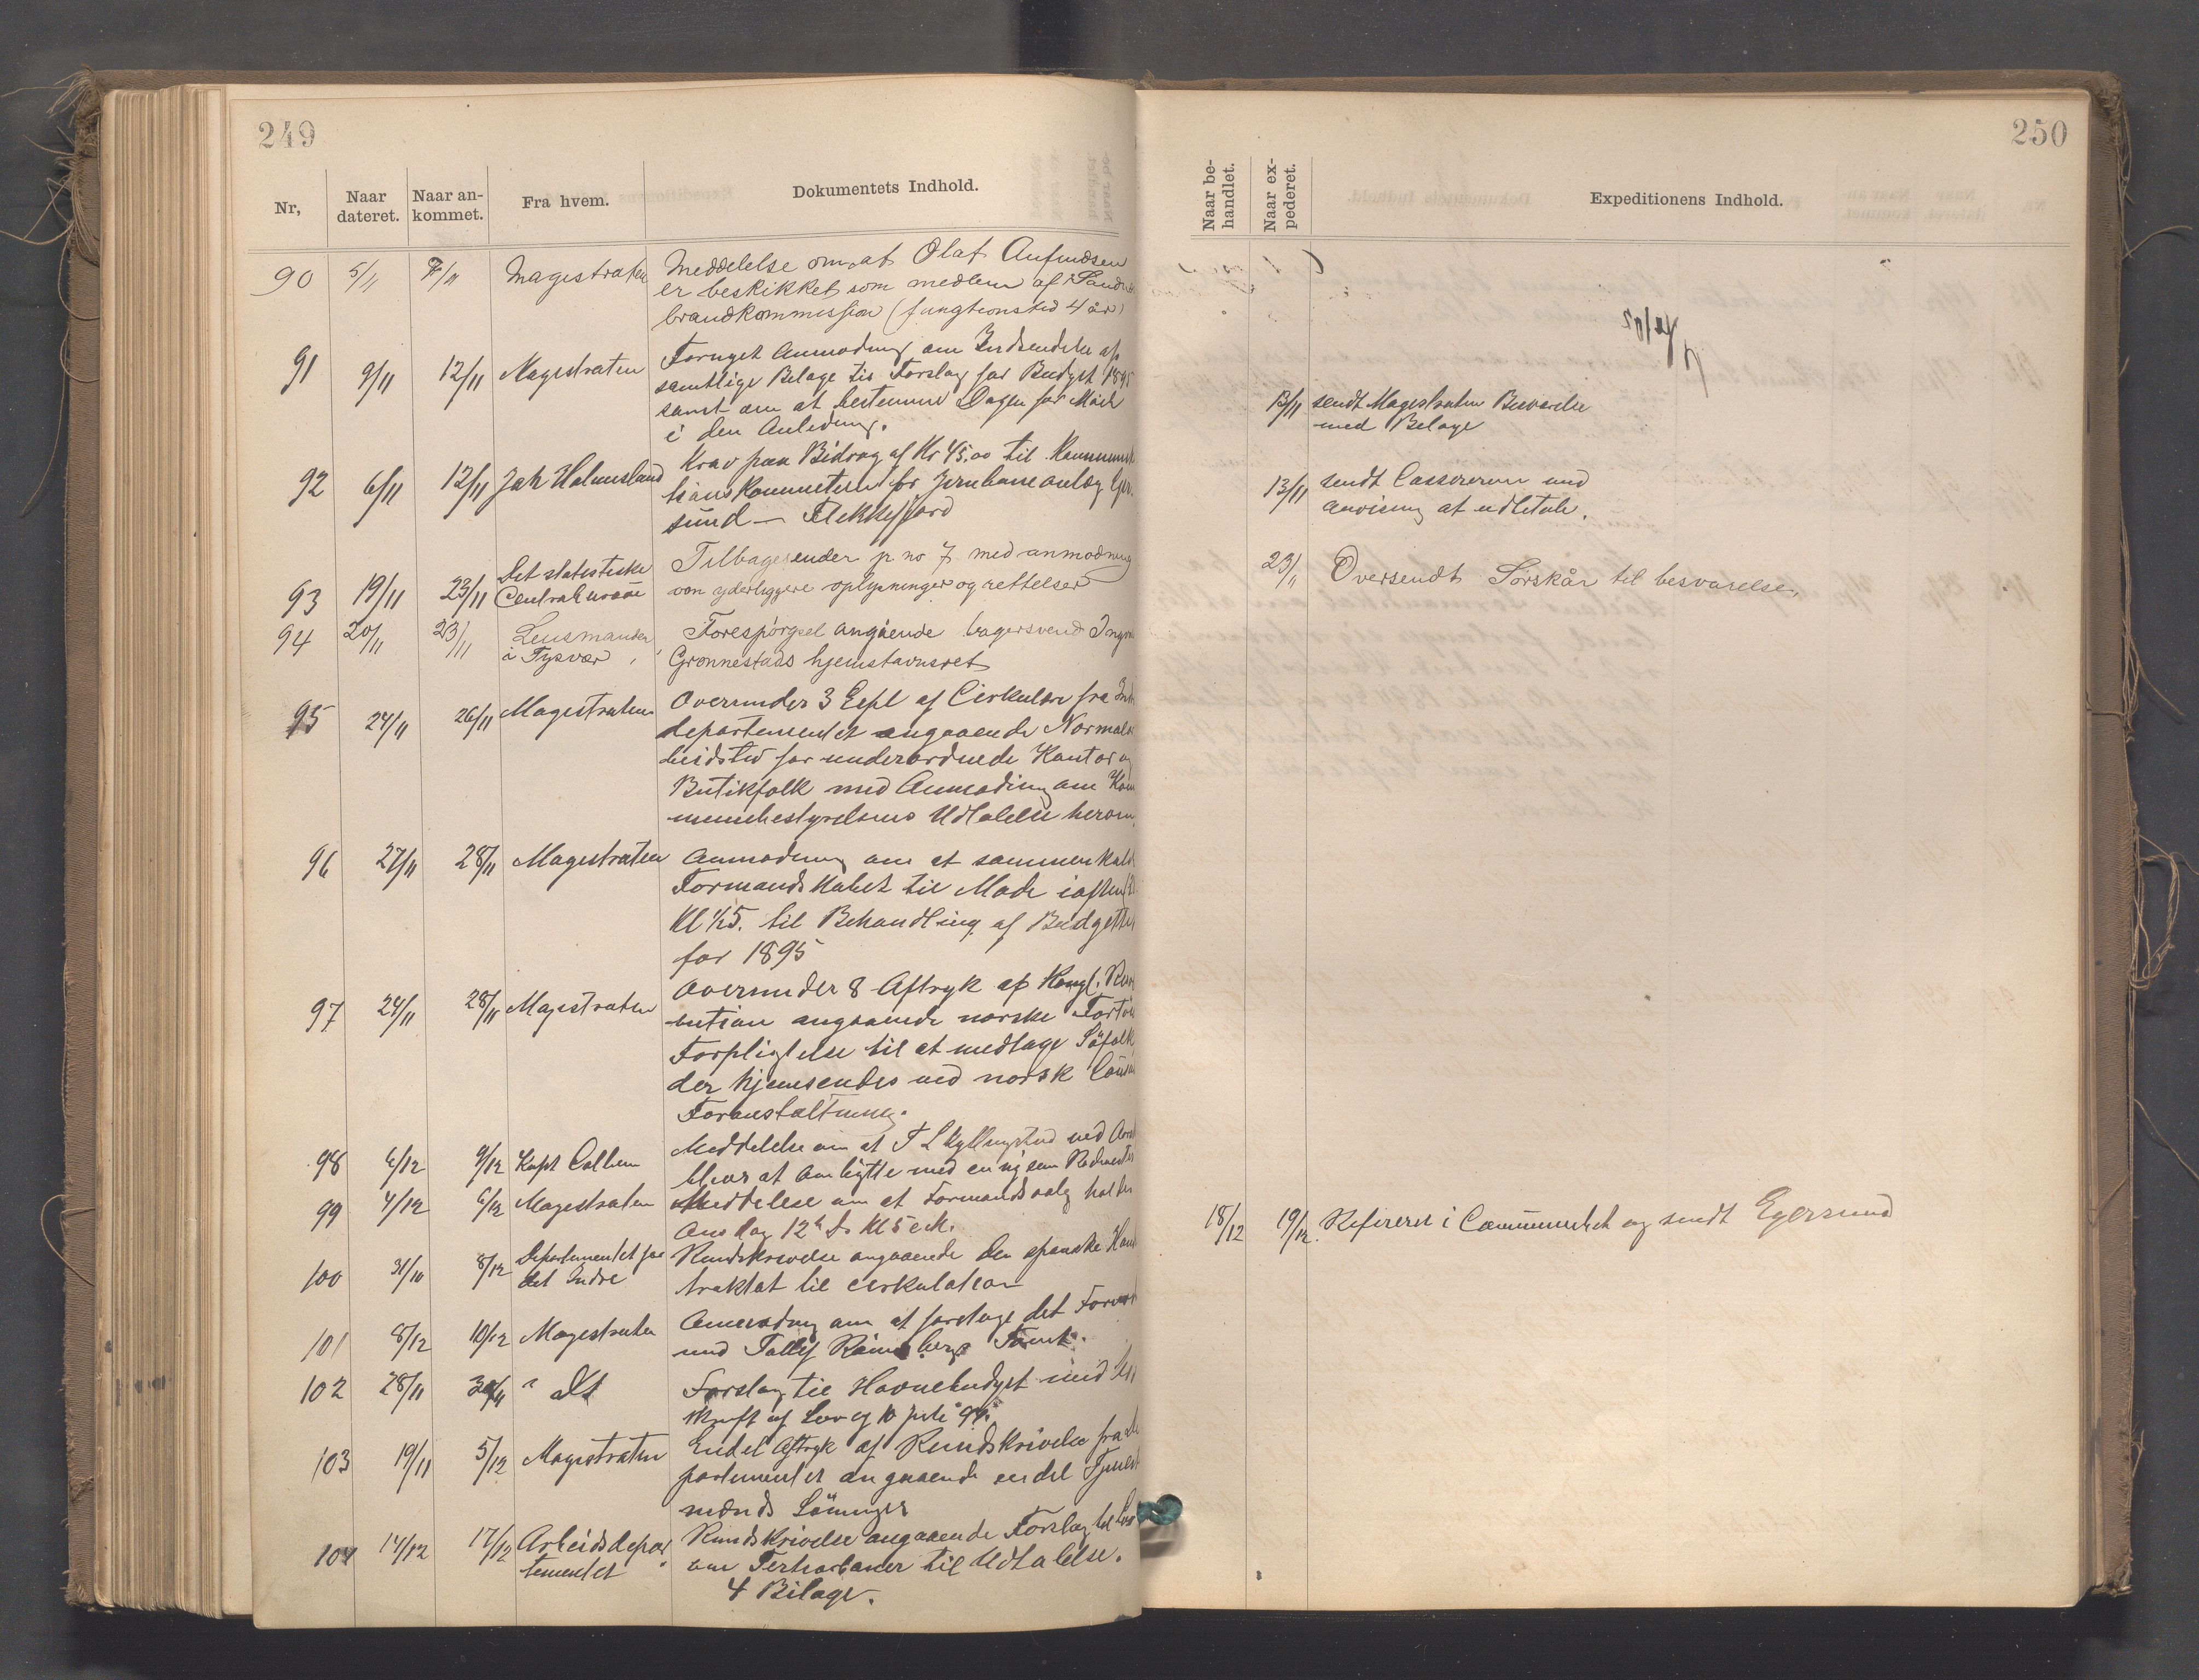 249
Nr, Naar dateret. Naar an- kommet. Fra hvem. Dokumentets Indhold.
90 5/11 7/11 Magistraten Meddelelse om, at Olaf Anfindsen
er beskikket som medlem af Sandn
brandkommission (fungtionstid 4 år)
91 9/11 12/11 Magistraten Fornyet Anmodning om Indsendelse af
samtlige Bilage til Forslag for Budget 1895
samt om at bestemme Dagen for Möde
i den Anledning.
92 6/11 12/11 Jak Holmesland Krav paa Bidrag af Kr 45.00 til
for Jernbaneanlæg
sund — Flekkefjord
93 19/11 23/11 Det statistiske Centralbureau Tilbagesender jr no 7 med anmodning
om yderliggere oplysninger og rettelser
94 20/11 23/11 Lensmanden i Tysvær Forespörgsel angående bagersvend Ingv
Grønnestads hjemstavnsret
95 24/11 26/11 Magistraten Oversender 3 Expl af Cirkulære fra Ind
departementet angaaende Normalar
beidstid for underordnede Kontor og
Butikfolk med Anmodning om Kom
munebestyrelsens Udtalelse herom.
96 27/11 28/11 Magistraten Anmodning om at sammenkald
Formandskabet til Möde iaften
Kl 1/2 5. til Behandling af Budgettet
for 1895
97 24/11 28/11 Magistraten Oversender 8 Aftryk af Kongl. Reso
lution angaaende norske Fartöi
Forpligtelse til at medtage Söfolk
der hjemsendes ved norsk Consu
Foranstaltning.
98 6/12 9/12 Kapt Meddelelse om at T Skyllingstad ved
at ombytte med en ny som
99 4/12 6/12 Magistraten Meddelelse om at Formandsvalg holdes
Onsdag 12te ds Kl 5 em.
100 31/10 8/12 Departementet for det Indre Rundskrivelse angaaende den spanske Han
traktat til cirkulation
101 8/12 10/12 Magistraten Anmodning om at foretage det
med
102 28/11 30/11 " Dt Forslag til Havnebudget med
skrift af Lov af 10 juli 94.
103 19/11 5/12 Magistraten Endel Aftryk af Rundskrivelse fra
partementet angaaende endel Tjenest
mænds Lönninger
104 14/12 17/12 Arbeidsdepar tementet Rundskrivelse angaaende Forslag til Lov
om Tertiærbaner til Udtalelse.
4 Bilage.
250
Naar be- handlet. Naar ex- pederet. Expeditionens Indhold.
13/11 sendt Magistraten Besvarelse
med Bilage
13/11 sendt Cassereren med
anvisning at udbetale.
23/11 Oversendt Sörskår til besvarelse,
18/12 19/12 Refereret i Communebest og sendt Egersund